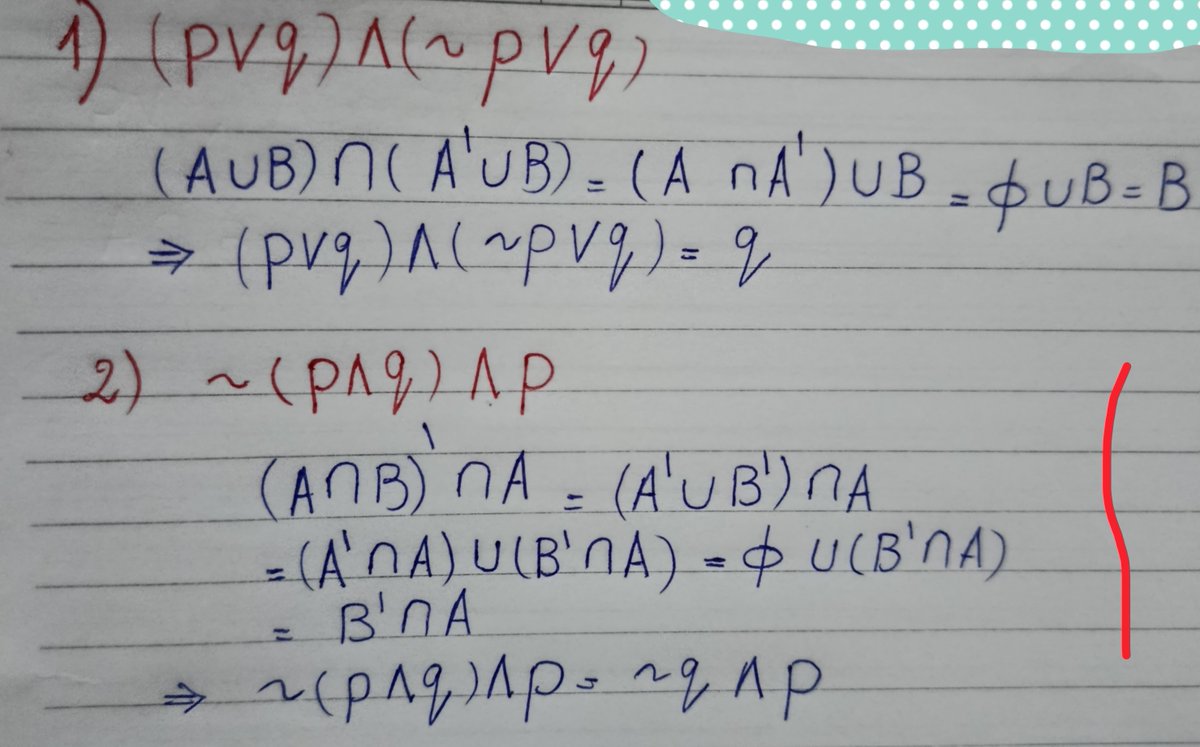 1) (p∨q)∧(~p∨q)
(A∪B)∩(A'∪B) = (A ∩A')∪B = ϕ∪B=B
⇒ (p∨q)∧(~p∨q)= q
2) ~(p∧q)∧p
(A∩B)'∩A = (A'∪B')∩A
=(A'∩A)∪(B'∩A) = ϕ ∪(B'∩A)
= B'∩A
⇒ ~(p∧q)∧p= ~q∧p